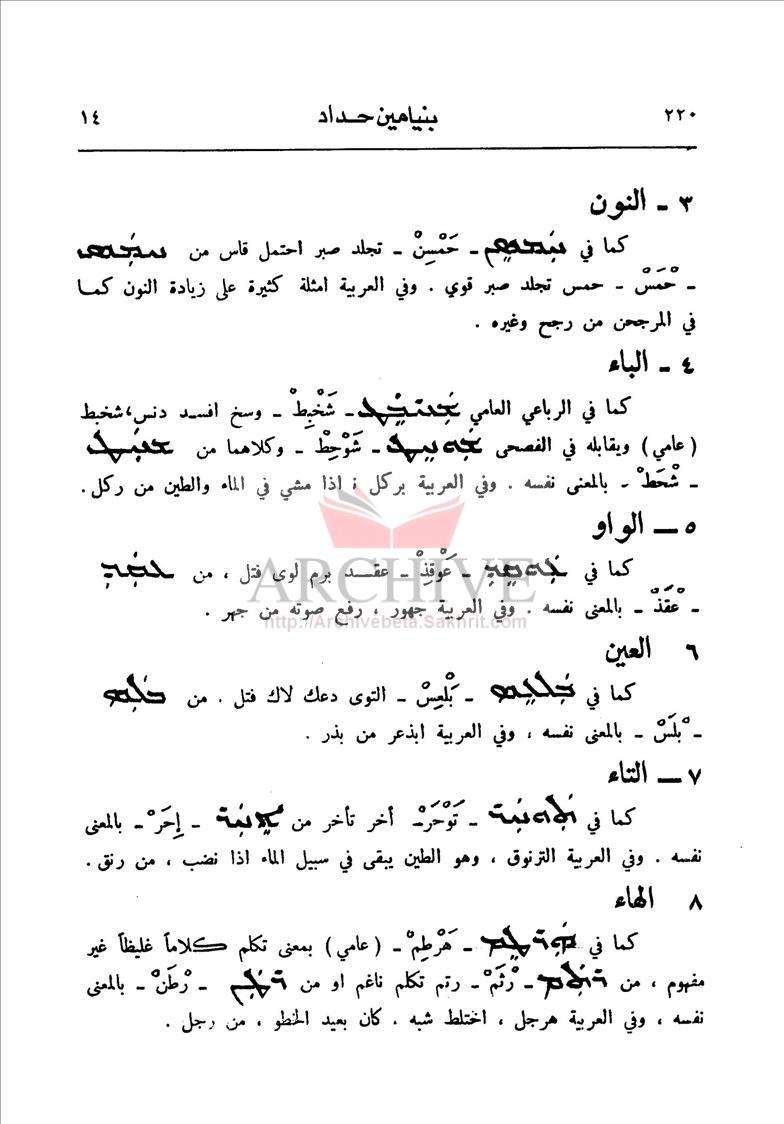 ٢٢٠ بنيامين حداد ١٤
٣ ـ النون
كما في ܚܲܡܣܸܢ ـ حَمْسِنْ ـ تجلد صبر احتمل قاس من ܚܡܲܣ
ـ حْمَسْ ـ حمس تجلد صبر قوي . وفي العربية امثلة كثيرة على زيادة النون كما
في المرجحن من رجح وغيره .
٤ ـ الباء
كما في الرباعي العامي ܫܲܚܒܸܛ ـ شَخْبِطْ ـ وسخ افسد دنس، شخبط
( عامي ) ويقابله في الفصحى ܫܲܘܚܸܛ ـ شَوْحِطْ ـ وكلاهما من ܫܚܲܛ
ـ شْحَطْ ـ بالمعنى نفسه . وفي العربية بركل ؛ اذا مشي في الماء والطين من ركل .
٥ ــ الواو
كما في ܥܲܘܩܸܕ ـ عَوْقِذْ ـ عقــد برم لوى فتل ، من ܥܩܲܕ
ـ عْقَذْ ـ بالمعنى نفسه . وفي العربية جهور ، رفع صوته من جهر .
ARCHIVE
http://Archivebeta.Sakhrit.com
٦ العين
كما في ܒܲܠܥܸܣ ـ بَلْعِسْ ـ التوى دعك لاك فتل . من ܒܠܲܣ
ـ بْلَسْ ـ بالمعنى نفسه ، وفي العربية ابذعر من بذر .
٧ ــ التاء
كما في ܬܲܘܚܲܪ ـ تَوْحَرْ ـ أخر تأخر من ܐܸܚܲܪ ـ إِحَرْ ـ بالمعنى
نفسه . وفي العربية الترنوق ، وهو الطين يبقى في سبيل الماء اذا نضب ، من رنق .
٨ الهاء
كما في ܗܲܪܛܸܡ ـ هَرْطِمْ ـ ( عامي ) بمعنى تكلم كلاماً غليظاً غير
مفهوم ، من ܪܬܲܡ ـ رْثَمْ ـ رتم تكلم ناغم او من ܪܛܲܢ ـ رْطَنْ ـ بالمعنى
نفسه ، وفي العربية هرجل ، اختلط شبه . كان بعيد الخطو ، من رجل .